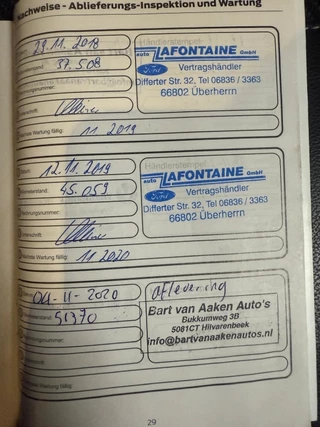 Nachweise - Ablieferungs-Inspektion und Wartung
29.11.2018
37.508
Händlerstempel:
auto LAFONTAINE GmbH
Ford Vertragshändler
Differter Str. 32, Tel 06836 / 3363
66802 Überherrn
Wartung fällig:
11 2019
12.11.2019
45.059
Händlerstempel:
auto LAFONTAINE GmbH
Ford Vertragshändler
Differter Str. 32, Tel 06836 / 3363
66802 Überherrn
Rechnungsnummer:
Nächste Wartung fällig:
11 2020
04-11-2020
51370
aflevering
Bart van Aaken Auto's
Bukkumweg 3B
5081CT Hilvarenbeek
info@bartvanaakenautos.nl
Wartung fällig:
29